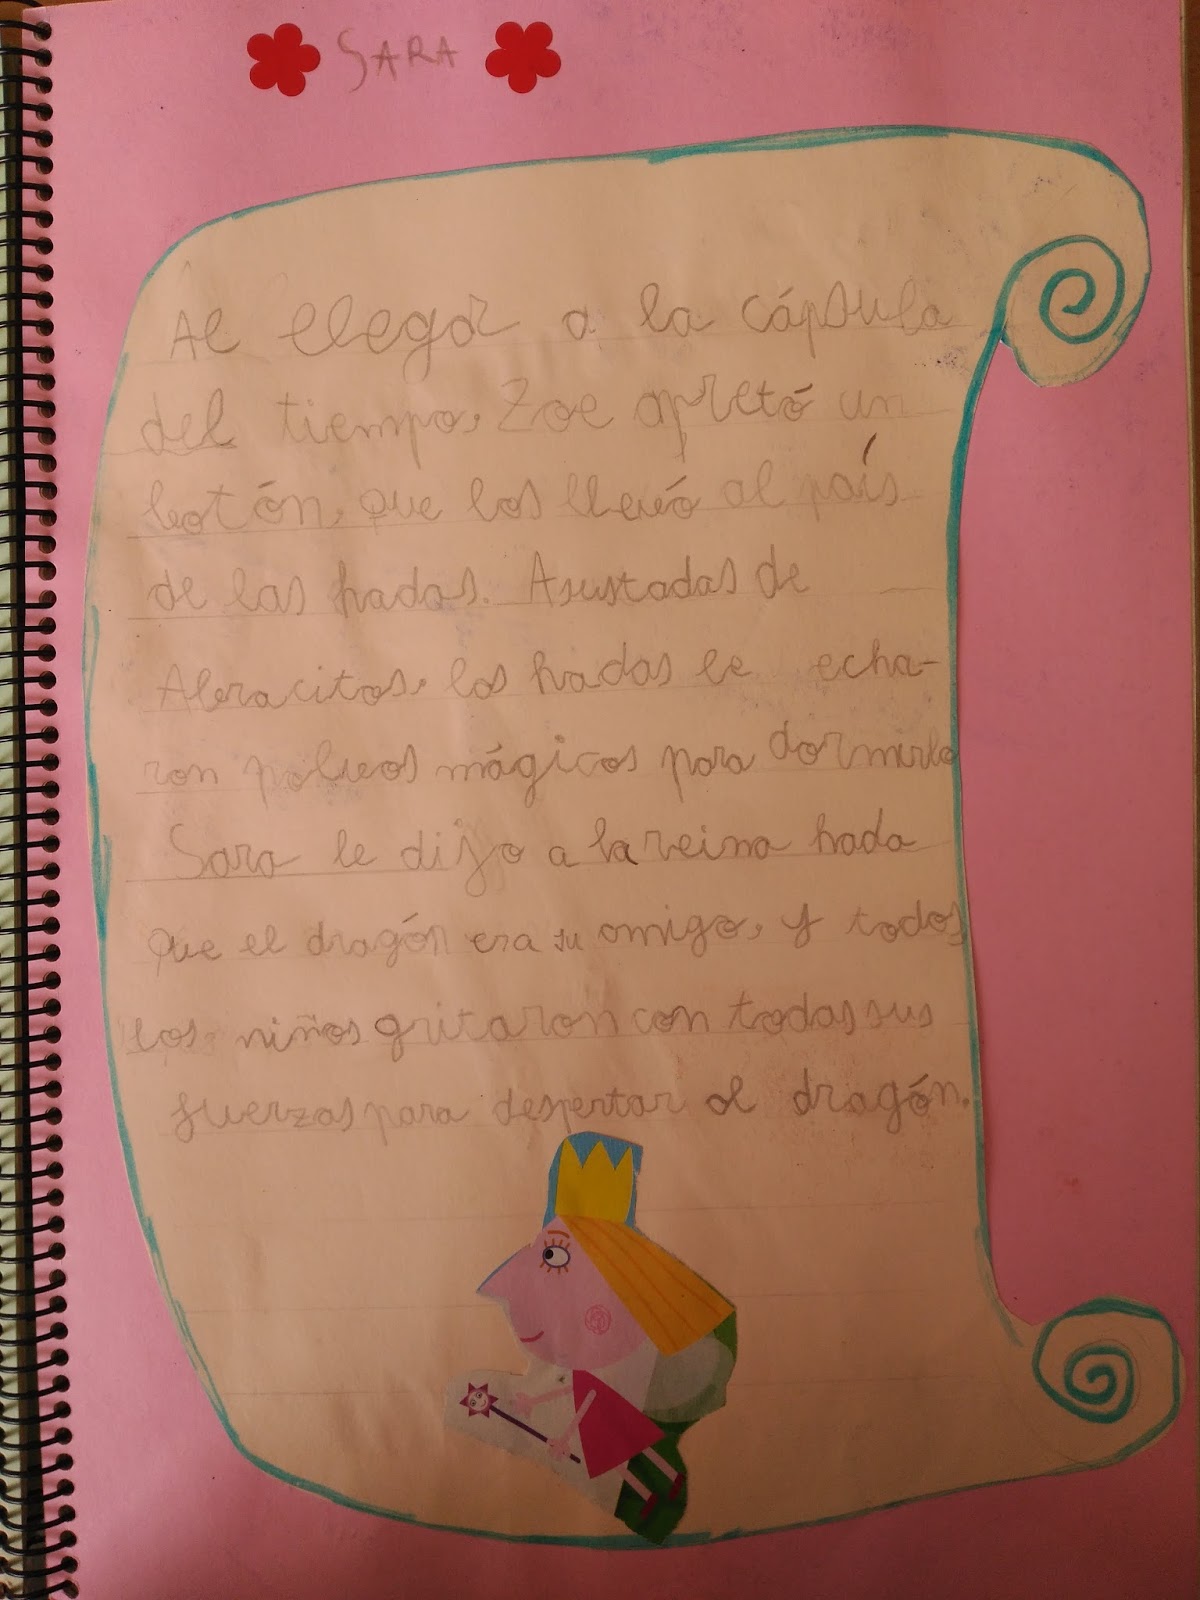 SARA
Al llegar a la cápsula
del tiempo, Zoe apretó un
botón, que los llevó al país
de las hadas. Asustadas de
Abracitos, las hadas le echa-
ron polvos mágicos para dormirlo
Sara le dijo a la reina hada
que el dragón era su amigo, y todos
los niños gritaron con todas sus
fuerzas para despertar al dragón.